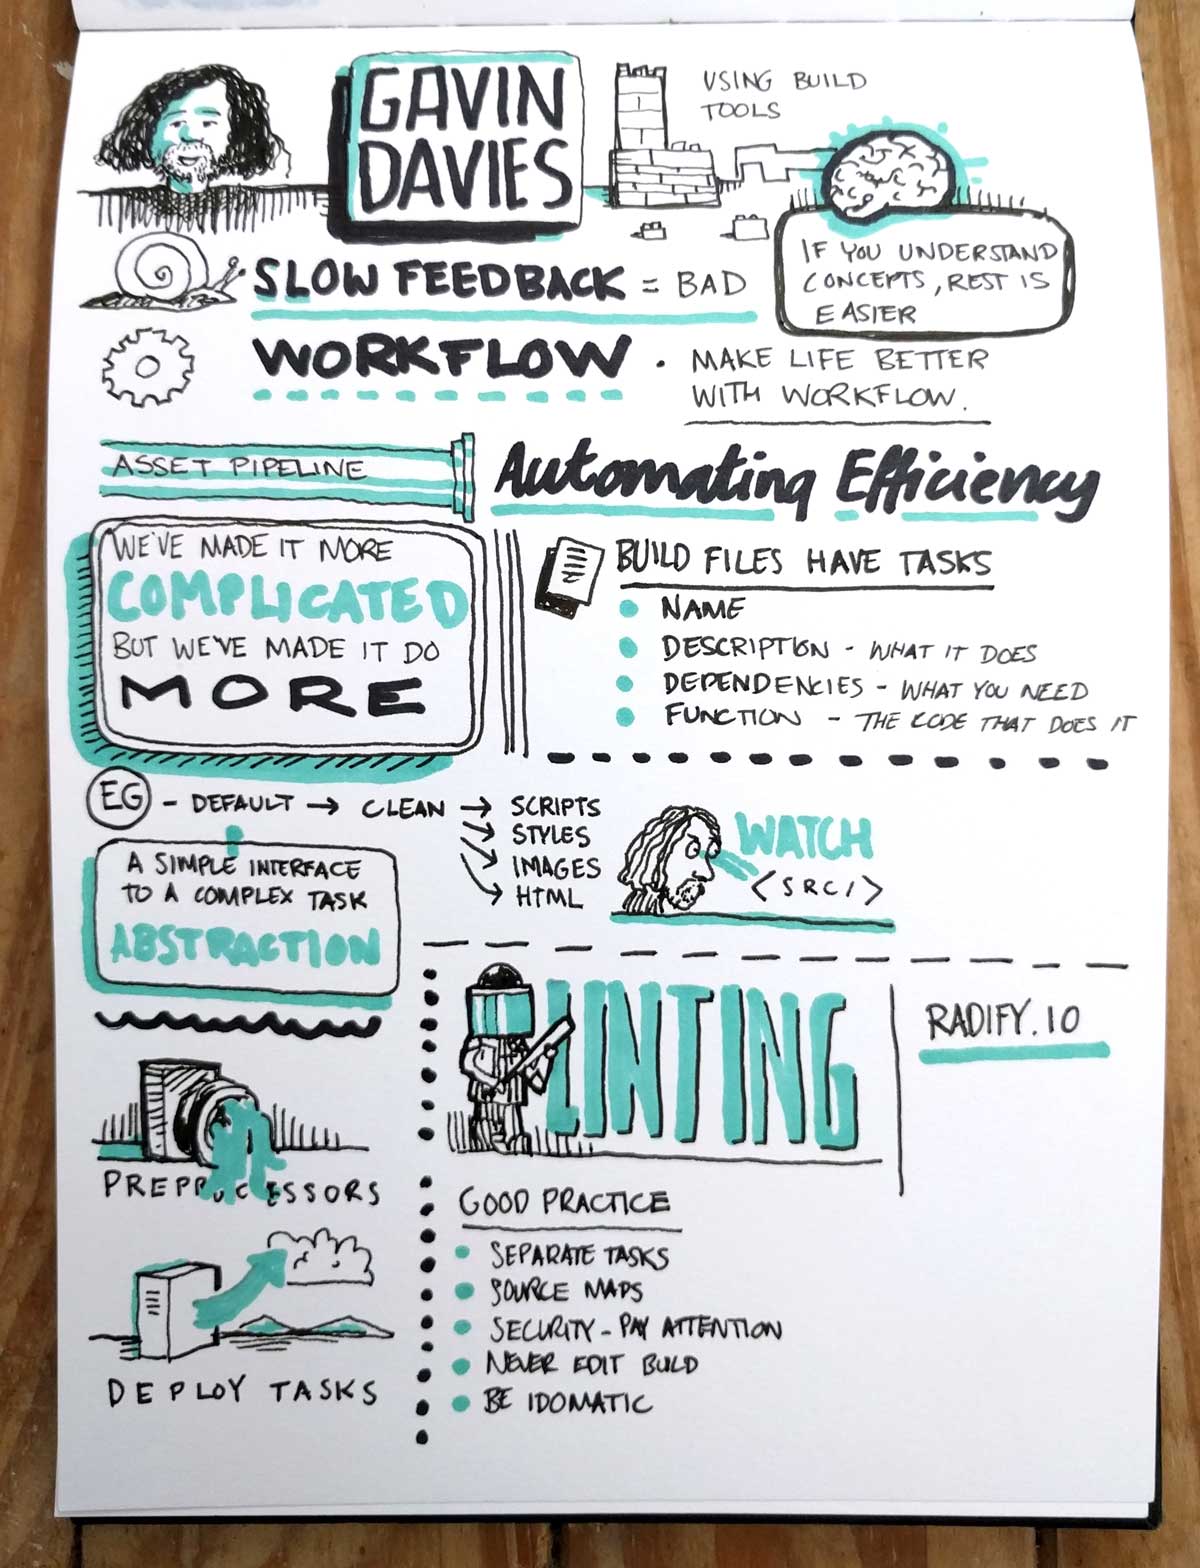 GAVIN
DAVIES
USING BUILD
TOOLS
IF YOU UNDERSTAND
CONCEPTS, REST IS
EASIER
SLOW FEEDBACK = BAD
WORKFLOW • MAKE LIFE BETTER
WITH WORKFLOW.
ASSET PIPELINE
WE'VE MADE IT MORE
COMPLICATED
BUT WE'VE MADE IT DO
MORE
Automating Efficiency
BUILD FILES HAVE TASKS
• NAME
• DESCRIPTION - WHAT IT DOES
• DEPENDENCIES - WHAT YOU NEED
• FUNCTION - THE CODE THAT DOES IT
EG - DEFAULT → CLEAN → SCRIPTS
STYLES
IMAGES
HTML
A SIMPLE INTERFACE
TO A COMPLEX TASK
ABSTRACTION
WATCH
<SRC/>
PREPROCESSORS
DEPLOY TASKS
LINTING
RADIFY.IO
GOOD PRACTICE
• SEPARATE TASKS
• SOURCE MAPS
• SECURITY - PAY ATTENTION
• NEVER EDIT BUILD
• BE IDOMATIC